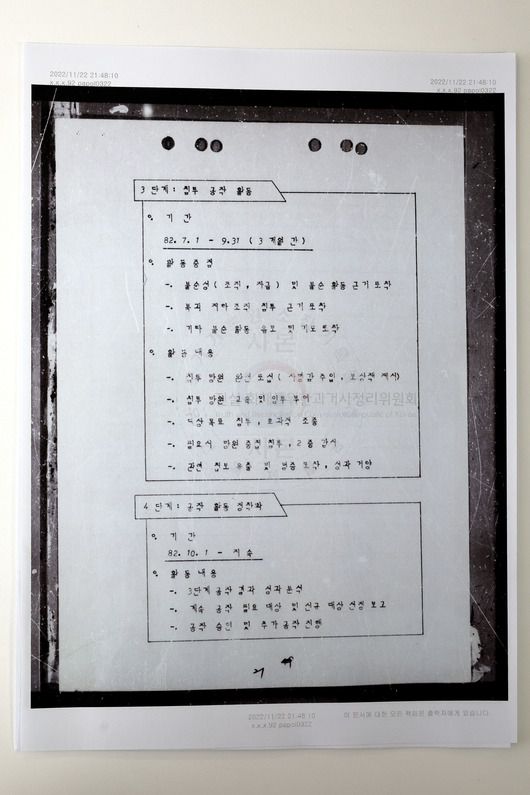 2022/11/22 21:48:10
x.x.x.92 papol0322
2022/11/22 21:48:10
x.x.x.92 papol0322
3 단계: 침투 공작 활동
o. 기 간
82. 7. 1 - 9.31 ( 3 개월 간 )
o. 활동중점
-. 불순성( 조직, 자금 ) 및 불순 활동 근거 포착
-. 북괴 지하조직 침투 근거포착
-. 기타 불순 활동 음모 및 기도 포착
o. 활동 내용
-. 침투 망원 완전 포섭( 사명감 주입, 보상책 제시)
-. 침투 망원 교육 및 임무 부여
-. 대상목표 침투, 효과적 조종
-. 필요시 망원 중첩 침투, 2중 감시
-. 관련 첩보 유출 및 입증 포착, 성과 거양
과거사정리위원회
4 단계: 공작 활동 정착화
o. 기 간
82. 10. 1 - 지속
o. 활동내용
-. 3단계 공작 결과 성과분석
-. 계속 공작 필요 대상 및 신규 대상 선정 보고
-. 공작 승인 및 추가공작 진행
21
2022/11/22 21:48:10
x.x.x.92 papol0322
이 문서에 대한 모든 책임은 출력자에게 있습니다.